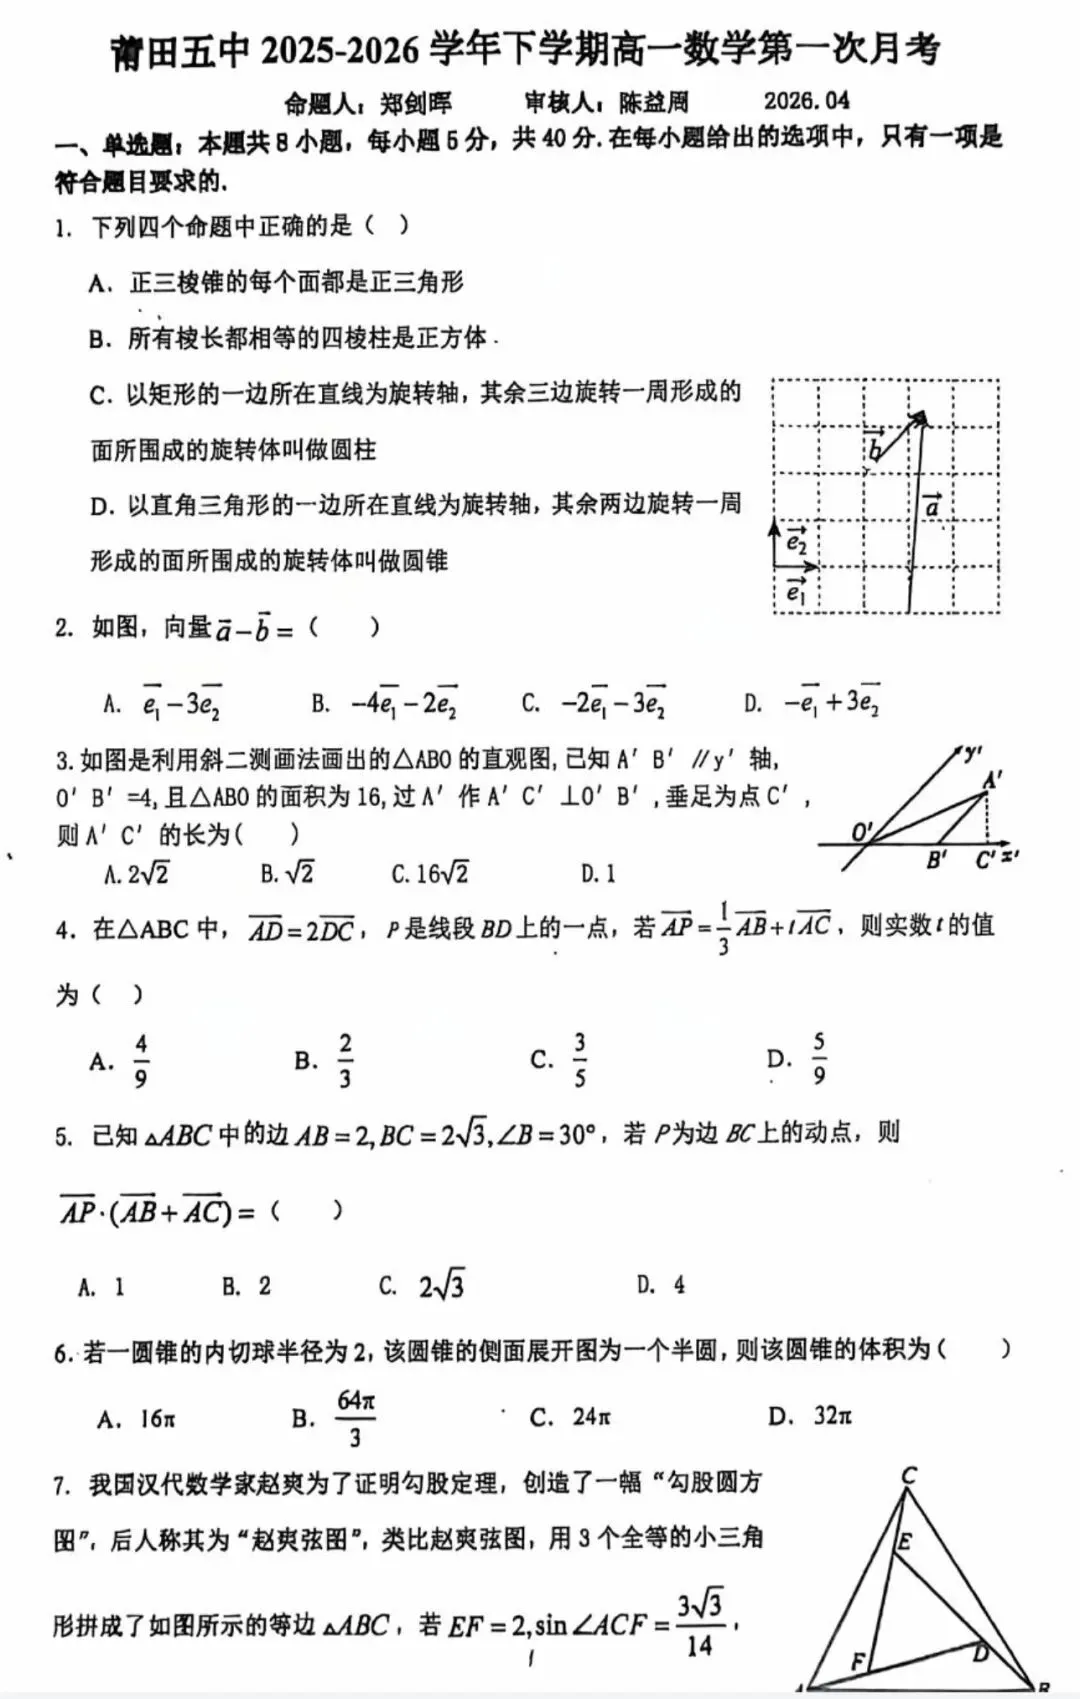 莆田五中 2025-2026 学年下学期高一数学第一次月考
命题人：郑剑晖 审核人：陈益周 2026.04
一、单选题：本题共 8 小题，每小题 5 分，共 40 分.在每小题给出的选项中，只有一项是
符合题目要求的.
1. 下列四个命题中正确的是（ ）
A. 正三棱锥的每个面都是正三角形
B. 所有棱长都相等的四棱柱是正方体.
C. 以矩形的一边所在直线为旋转轴，其余三边旋转一周形成的
面所围成的旋转体叫做圆柱
D. 以直角三角形的一边所在直线为旋转轴，其余两边旋转一周
形成的面所围成的旋转体叫做圆锥
b⃗
a⃗
e₂⃗
e₁⃗
2. 如图，向量 a⃗－b⃗＝（ ）
A. e₁⃗－3e₂⃗ B. －4e₁⃗－2e₂⃗ C. －2e₁⃗－3e₂⃗ D. －e₁⃗＋3e₂⃗
3.如图是利用斜二测画法画出的△ABO 的直观图,已知 A′ B′ ∥y′ 轴,
O′ B′ =4,且△ABO 的面积为 16,过 A′ 作 A′ C′ ⊥O′ B′ ,垂足为点 C′ ,
则 A′ C′ 的长为( )
A.2√2 B.√2 C.16√2 D.1
y′
A′
O′
B′ C′ x′
4. 在△ABC 中，AD⃗=2DC⃗，P 是线段 BD 上的一点，若 AP⃗=1/3 AB⃗+tAC⃗，则实数 t 的值
为（ ）
A. 4/9 B. 2/3 C. 3/5 D. 5/9
5. 已知 △ABC 中的边 AB=2,BC=2√3,∠B=30°，若 P 为边 BC 上的动点，则
AP⃗·(AB⃗+AC⃗)=（ ）
A. 1 B. 2 C. 2√3 D. 4
6.若一圆锥的内切球半径为 2,该圆锥的侧面展开图为一个半圆,则该圆锥的体积为( )
A. 16π B. 64π/3 C. 24π D. 32π
7. 我国汉代数学家赵爽为了证明勾股定理，创造了一幅“勾股圆方
图”，后人称其为“赵爽弦图”，类比赵爽弦图，用 3 个全等的小三角
形拼成了如图所示的等边 △ABC，若 EF=2,sin∠ACF=3√3/14，
C
E
F
D
A
B
1